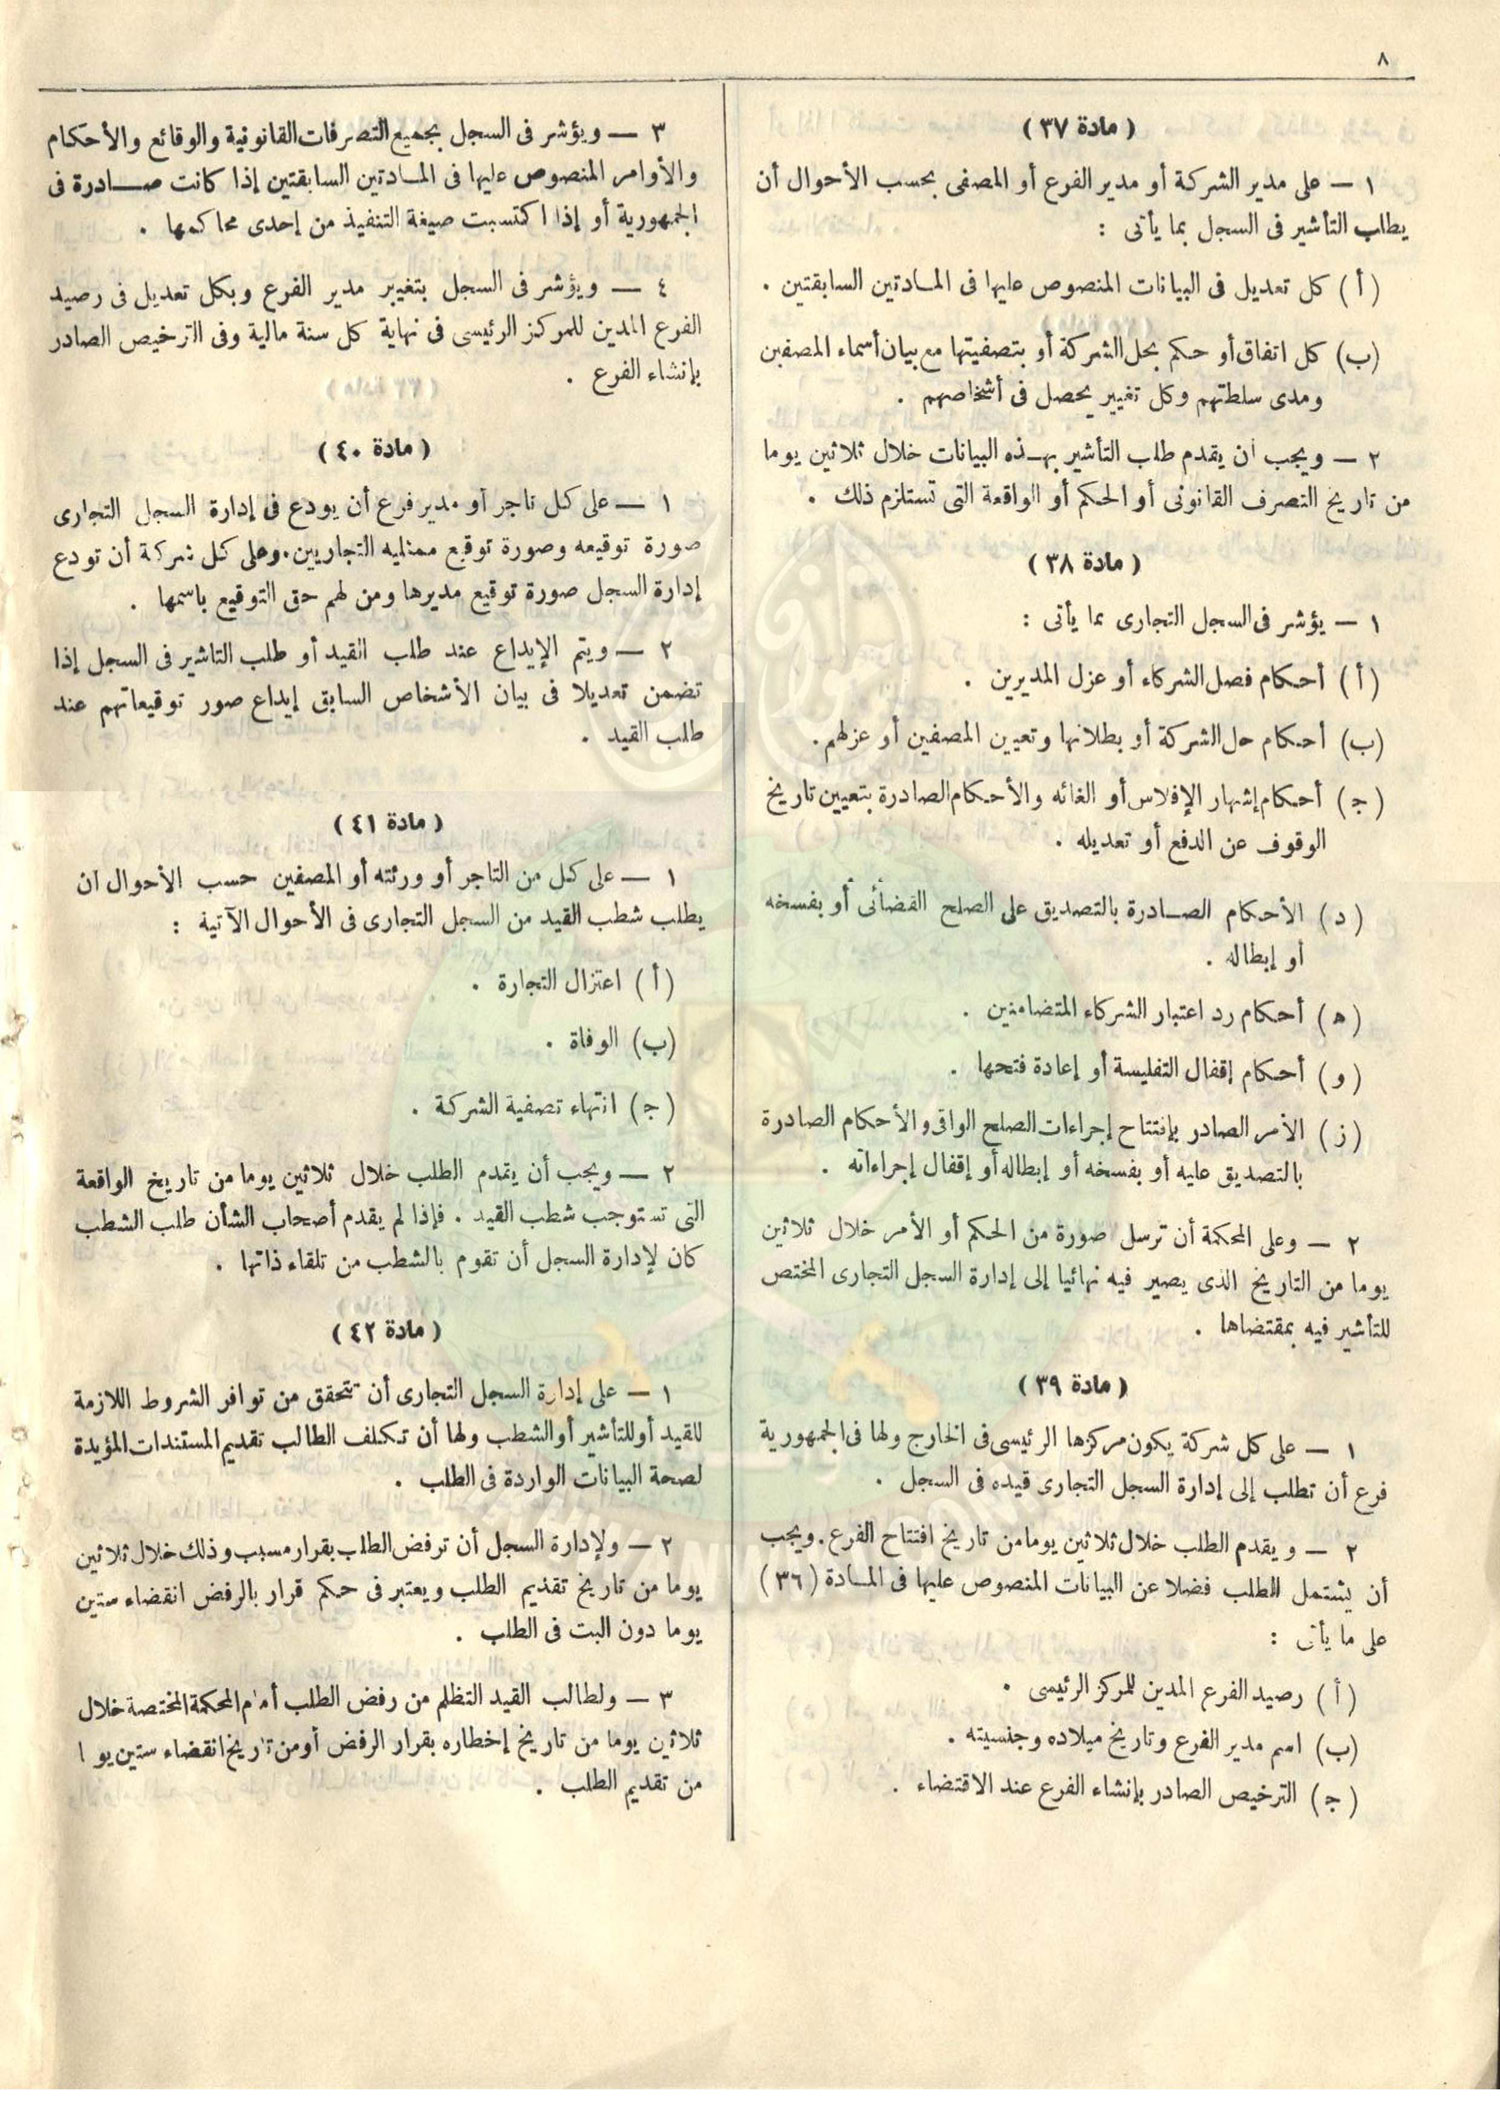 ٨
( مادة ٣٧ )
١ — على مدير الشركة أو مدير الفرع أو المصفى بحسب الأحوال أن
يطلب التأشير فى السجل بما يأتى :
(أ) كل تعديل فى البيانات المنصوص عليها فى المادتين السابقتين .
(ب) كل اتفاق أو حكم بحل الشركة أو بتصفيتها مع بيان أسماء المصفين
ومدى سلطتهم وكل تغيير يحصل فى أشخاصهم .
٢ — ويجب أن يقدم طلب التأشير بهذه البيانات خلال ثلاثين يوما
من تاريخ التصرف القانونى أو الحكم أو الواقعة التى تستلزم ذلك .
( مادة ٣٨ )
١ — يؤشر فى السجل التجارى بما يأتى :
(أ) أحكام فصل الشركاء أو عزل المديرين .
(ب) أحكام حل الشركة أو بطلانها وتعيين المصفين أو عزلهم .
(ج) أحكام إشهار الإفلاس أو الغائه والأحكام الصادرة بتعيين تاريخ
الوقوف عن الدفع أو تعديله .
(د) الأحكام الصادرة بالتصديق على الصلح القضائى أو بفسخه
أو إبطاله .
(ه) أحكام رد اعتبار الشركاء المتضامنين .
(و) أحكام إقفال التفليسة أو إعادة فتحها .
(ز) الأمر الصادر بإفتتاح إجراءات الصلح الواقى والأحكام الصادرة
بالتصديق عليه أو بفسخه أو إبطاله أو إقفال إجراءاته .
٢ — وعلى المحكمة أن ترسل صورة من الحكم أو الأمر خلال ثلاثين
يوما من التاريخ الذى يصير فيه نهائيا إلى إدارة السجل التجارى المختص
للتأشير فيه بمقتضاها .
( مادة ٣٩ )
١ — على كل شركة يكون مركزها الرئيسى فى الخارج ولها فى الجمهورية
فرع أن تطلب إلى إدارة السجل التجارى قيده فى السجل .
٢ — ويقدم الطلب خلال ثلاثين يوما من تاريخ افتتاح الفرع . ويجب
أن يشتمل الطلب فضلا عن البيانات المنصوص عليها فى المادة (٣٦)
على ما يأتى :
(أ) رصيد الفرع المدين للمركز الرئيسى .
(ب) اسم مدير الفرع وتاريخ ميلاده وجنسيته .
(ج) الترخيص الصادر بإنشاء الفرع عند الاقتضاء .
٣ — ويؤشر فى السجل بجميع التصرفات القانونية والوقائع والأحكام
والأوامر المنصوص عليها فى المادتين السابقتين إذا كانت صادرة فى
الجمهورية أو إذا اكتسبت صيغة التنفيذ من إحدى محاكمها .
٤ — ويؤشر فى السجل بتغيير مدير الفرع وبكل تعديل فى رصيد
الفرع المدين للمركز الرئيسى فى نهاية كل سنة مالية وفى الترخيص الصادر
بإنشاء الفرع .
( مادة ٤٠ )
١ — على كل تاجر أو مدير فرع أن يودع فى إدارة السجل التجارى
صورة توقيعه وصورة توقيع ممثليه التجاريين . وعلى كل شركة أن تودع
إدارة السجل صورة توقيع مديرها ومن لهم حق التوقيع باسمها .
٢ — ويتم الإيداع عند طلب القيد أو طلب التاشير فى السجل إذا
تضمن تعديلا فى بيان الأشخاص السابق إيداع صور توقيعاتهم عند
طلب القيد .
( مادة ٤١ )
١ — على كل من التاجر أو ورثته أو المصفين حسب الأحوال أن
يطلب شطب القيد من السجل التجارى فى الأحوال الآتية :
(أ) اعتزال التجارة .
(ب) الوفاة .
(ج) انتهاء تصفية الشركة .
٢ — ويجب أن يقدم الطلب خلال ثلاثين يوما من تاريخ الواقعة
التى تستوجب شطب القيد . فإذا لم يقدم أصحاب الشأن طلب الشطب
كان لإدارة السجل أن تقوم بالشطب من تلقاء ذاتها .
( مادة ٤٢ )
١ — على إدارة السجل التجارى أن تتحقق من توافر الشروط اللازمة
للقيد أو للتأشير أو الشطب ولها أن تكلف الطالب تقديم المستندات المؤيدة
لصحة البيانات الواردة فى الطلب .
٢ — ولإدارة السجل أن ترفض الطلب بقرار مسبب وذلك خلال ثلاثين
يوما من تاريخ تقديم الطلب ويعتبر فى حكم قرار بالرفض انقضاء ستين
يوما دون البت فى الطلب .
٣ — ولطالب القيد التظلم من رفض الطلب أمام المحكمة المختصة خلال
ثلاثين يوما من تاريخ إخطاره بقرار الرفض أو من تاريخ انقضاء ستين يوما
من تقديم الطلب .